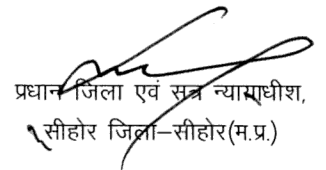 प्रधान जिला एवं सत्र न्यायाधीश,
सीहोर जिला–सीहोर(म.प्र.)